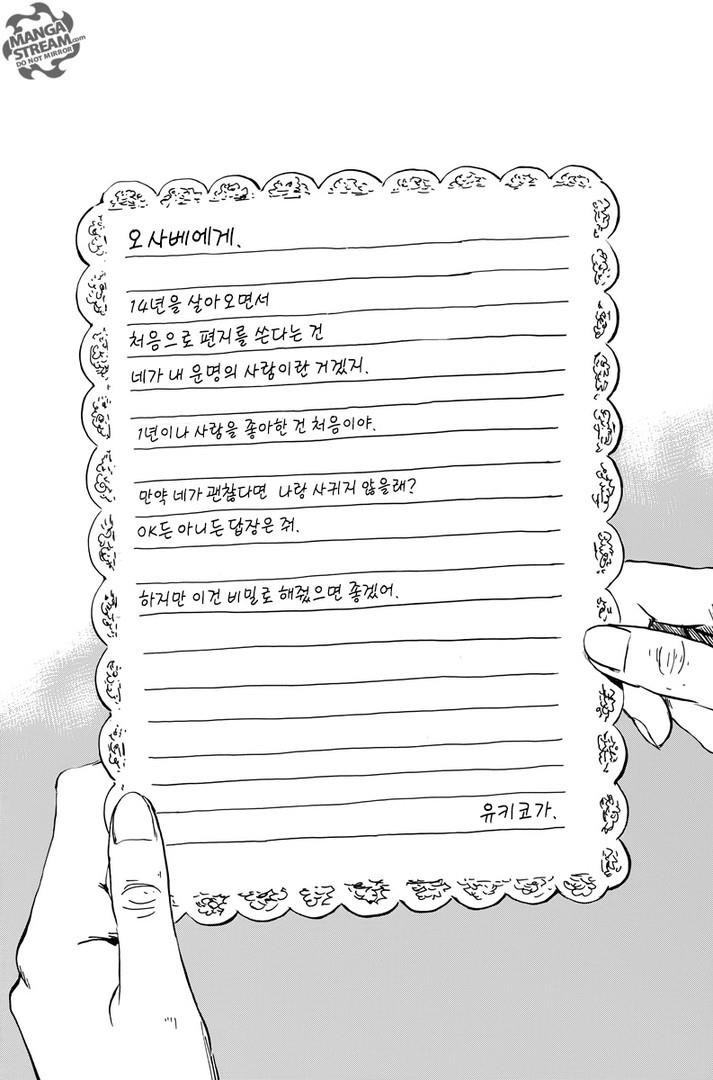 MANGA
STREAM.com
DO NOT MIRROR
오사베에게.
14년을 살아오면서
처음으로 편지를 쓴다는 건
네가 내 운명의 사람이란 거겠지.
1년이나 사람을 좋아한 건 처음이야.
만약 네가 괜찮다면 나랑 사귀지 않을래?
OK든 아니든 답장은 줘.
하지만 이건 비밀로 해줬으면 좋겠어.
유키코가.